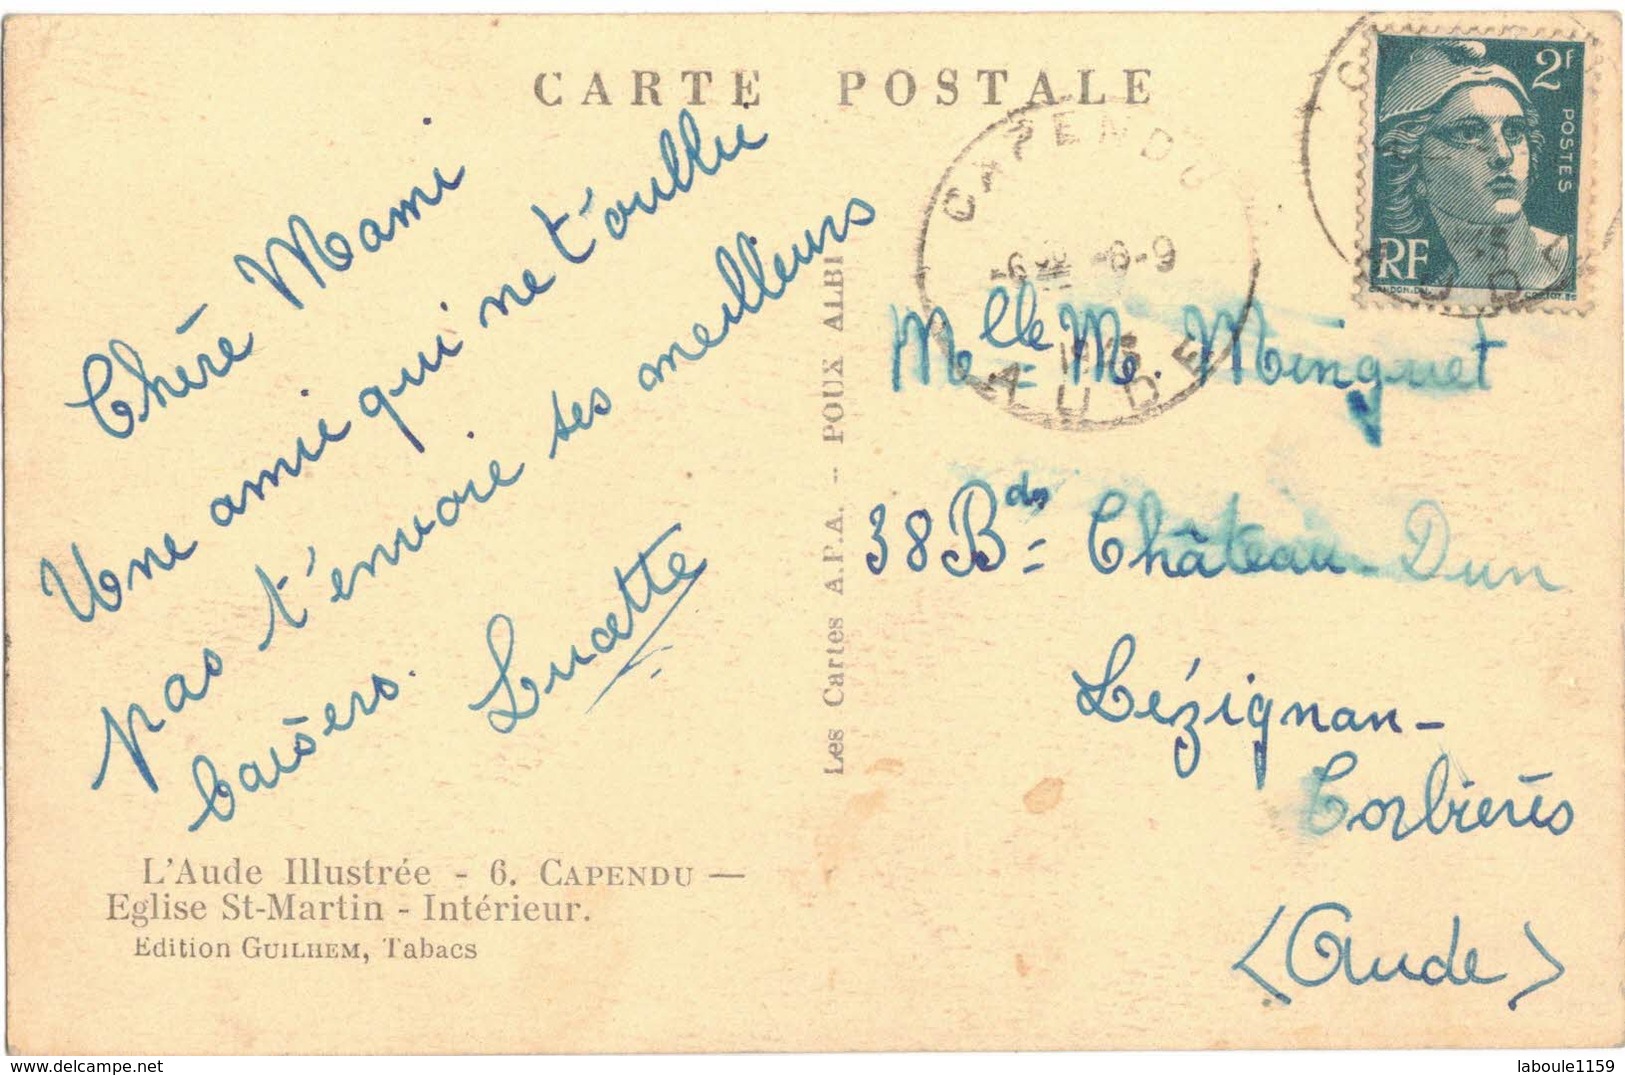 CARTE POSTALE
Chère Mami
Une amie qui ne t'oublie
pas t'envoie ses meilleurs
baisers.
Lucette
L'Aude Illustrée - 6. CAPENDU —
Eglise St-Martin - Intérieur.
Edition GUILHEM, Tabacs
Les Cartes A.P.A. -- POUX ALBI
CAPENDU
AUDE
2F
POSTES
RF
Mlle = M. Minguet
38 Bds = Château-Dun
Lézignan-
Corbières
(Aude)
https://www.delcampe.net
laboule1159